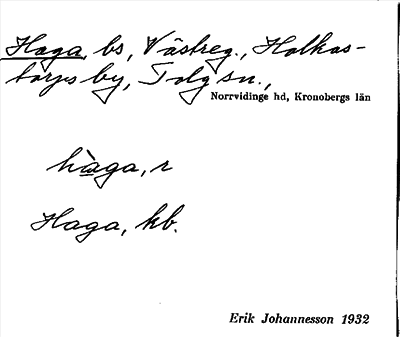 Haga, bs, Västreg., Holkas-
torps by, Tolg sn.,
Norrvidinge hd, Kronobergs län
hàga, r
Haga, kb.
Erik Johannesson 1932